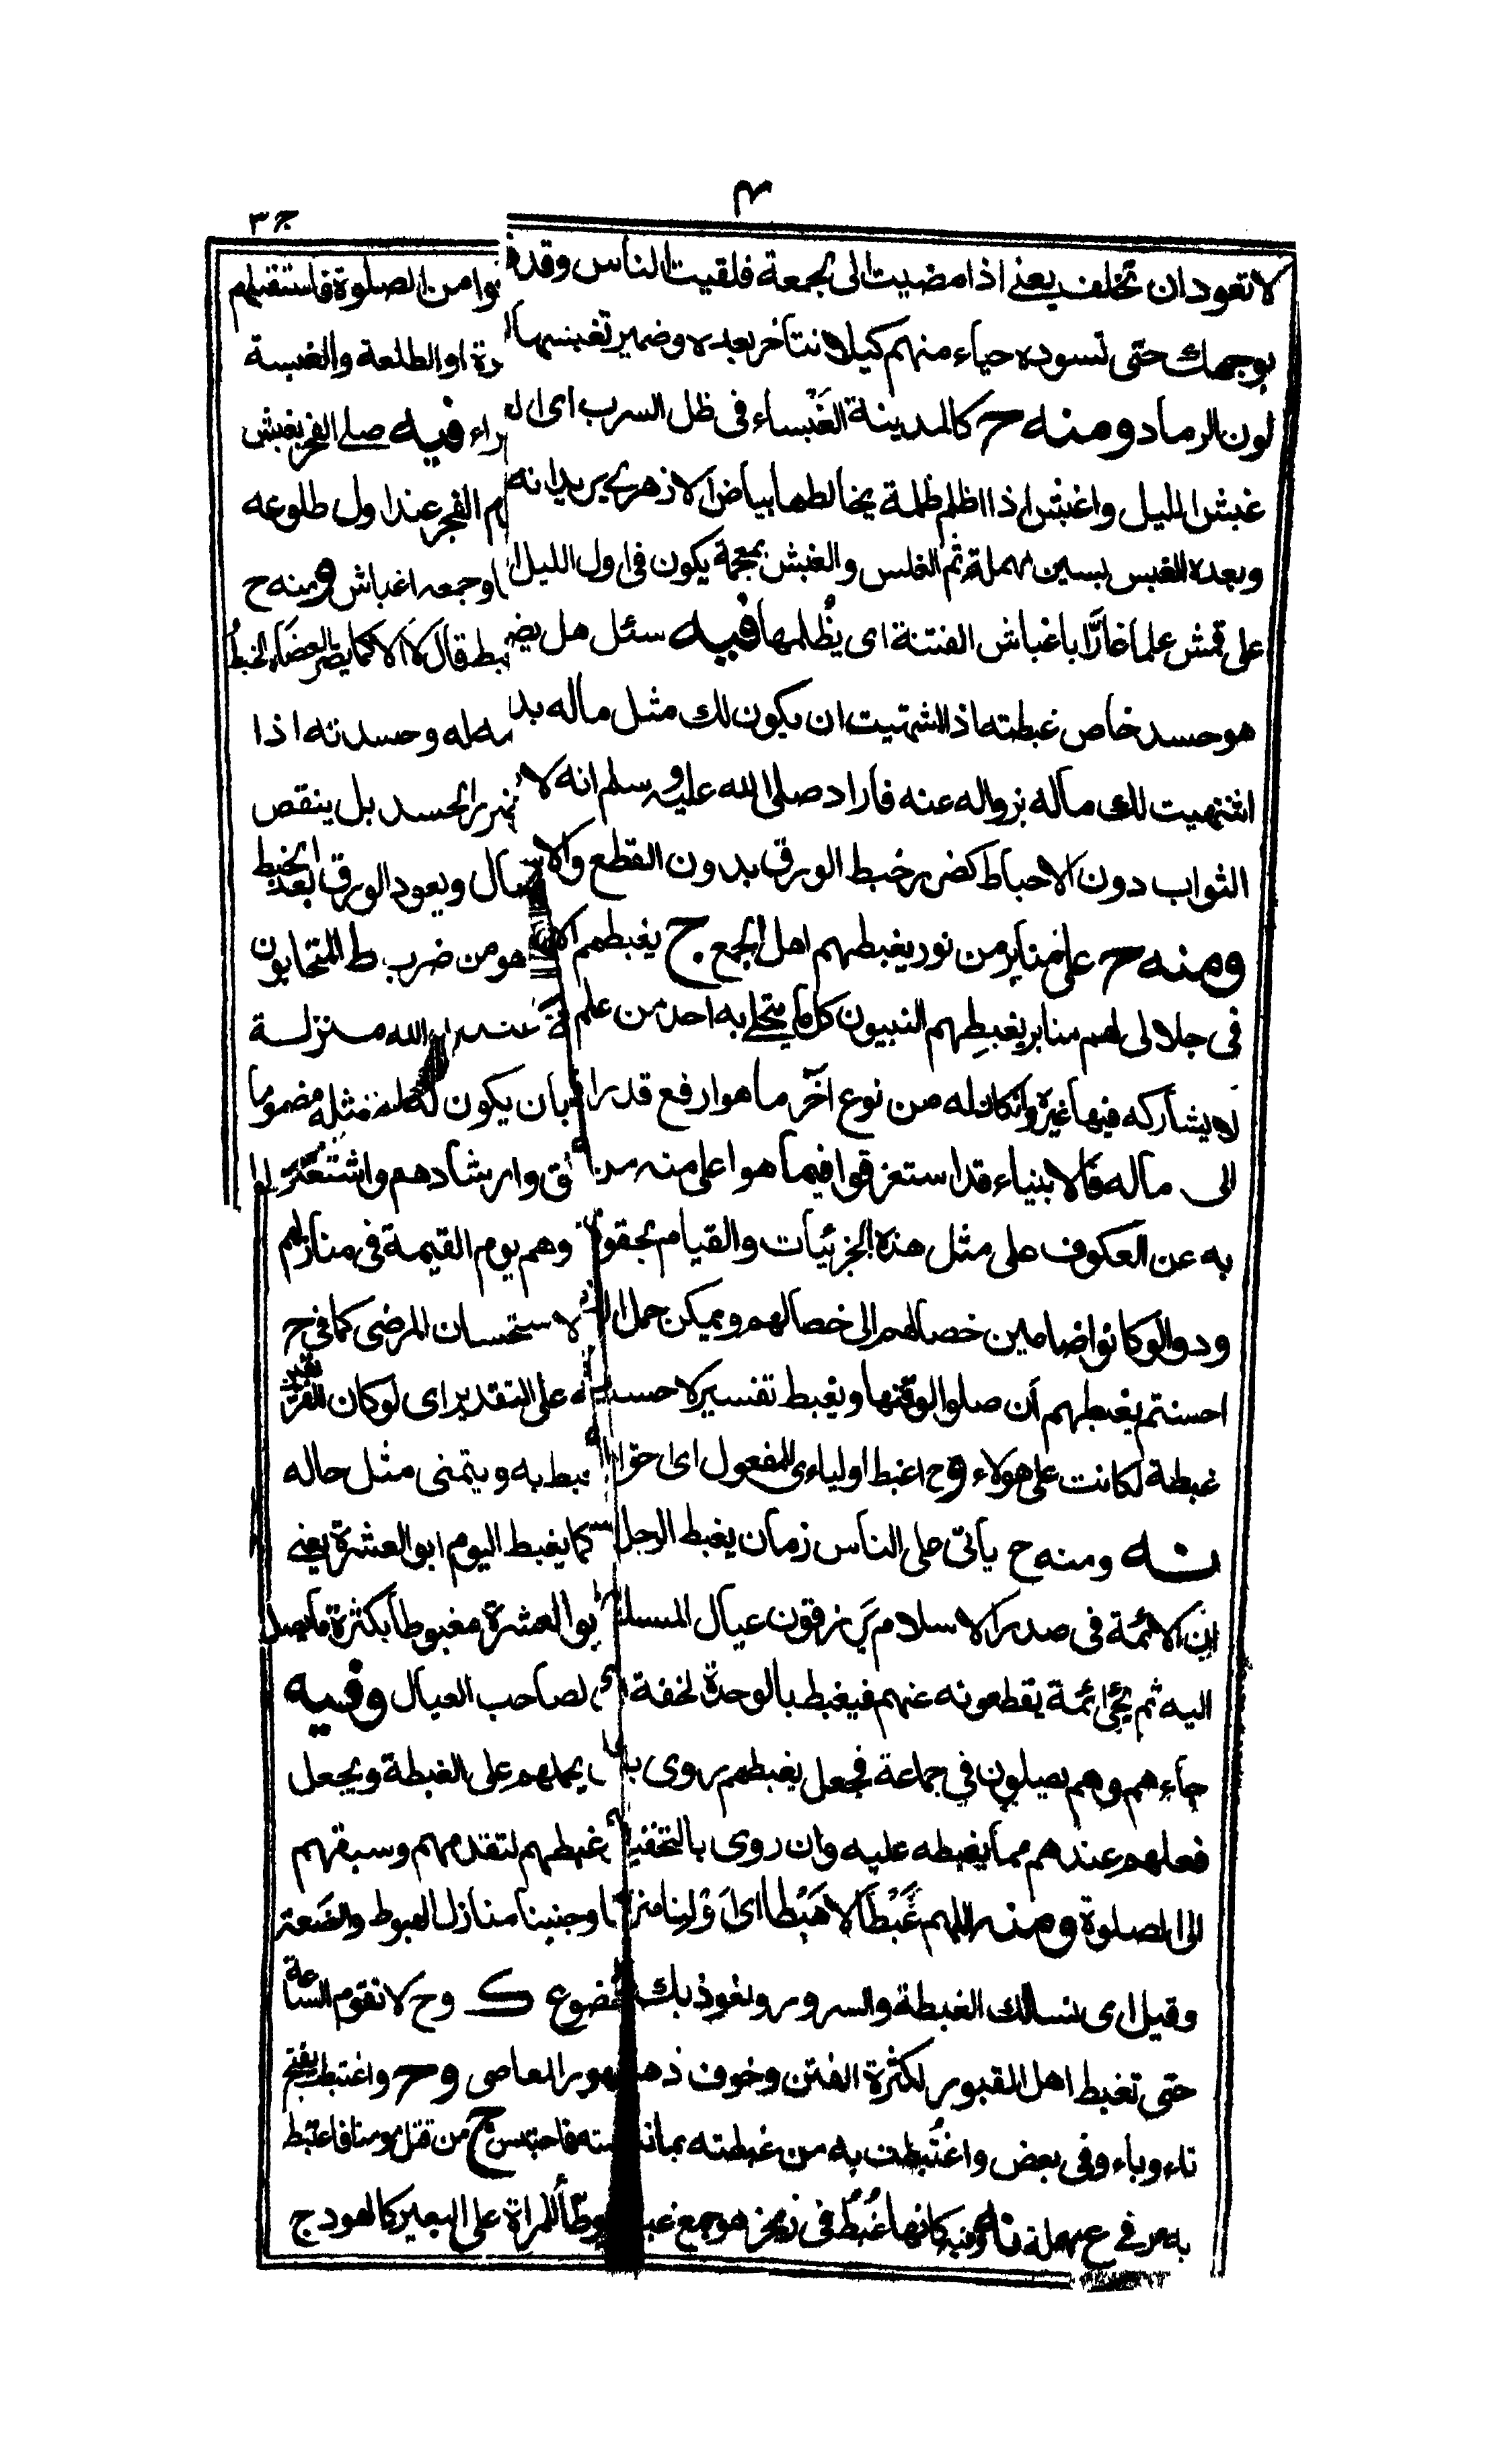 ٣
ج ٣
لا تعود ان تخلف يعنى اذا مضيت الى الجمعة فلقيت الناس وقد من الصلوة فاستقبلهم
بوجهك حتى تسوده حياء منهم كيلا نتاخر بعده وضمير تغبسها او الطلعة والغبسة
لون الرماد ومنه ح كالمدينة الغَبْساء فى ظل السرب اى فيه صلى الفجر بغبش
غبش الليل واغبش اذا اظلم ظلمة يخالطها بياض الازهرى يريد انه الفجر عند اول طلوعه
وبعده الغبس بسين مهملة ثم الغلس والغبش بمعجمة يكون فى اول الليل وجمعه اغباش ومنه ح
على قمش علما غارًّا باغباش الفتنة اى بظُلمها فيه سئل هل يضر الغبط قال لا الا كما يضر العضاه الخبط
هو حسد خاص غبطته اذا اشتهيت ان يكون لك مثل ماله له وحسدته اذا
اشتهيت لك ماله بزواله عنه فاراد صلى الله عليه وسلم انه لا يضر ضرر الحسد بل ينقص
الثواب دون الاحباط كضرر خبط الورق بدون القطع والاستيصال ويعود الورق بعد الخبط
ومنه ح على منابر من نور يغبطهم اهل الجمع ج يغبطهم هو من ضرب ط المتحابون
فى جلالى لهم منابر يغبطهم النبيون كل ما يتحلى به احد من علم عند الله منزلة
لا يشاركه فيها غيره وانكان له من نوع اخر ما هو ارفع قدرا بان يكون له مثله مضموما
الى ماله فالانبياء قد استغرقوا فيما هو اعلى منه وارشادهم واشتغلوا
به عن العكوف على مثل هذه الجزئيات والقيام بحقو وهم يوم القيمة فى منازلهم
ودوا لو كانوا ضامين خصالهم الى خصالهم ويمكن حمل الاستحسان المرضى كما فى ح
احسنتم يغبطهم أن صلوا لوقتها ويغبط تفسيره لاحسنتم على التقدير اى لو كان
غبطة لكانت على هولاء وح اغبط اوليائى للمفعول اى يغبط به ويتمنى مثل حاله
نه ومنه ح ياتى على الناس زمان يغبط الرجل كما يغبط اليوم ابو العشرة يعنى
ان الائمة فى صدر الاسلام يرزقون عيال المسلمين ابو العشرة مغبوطا بكثرة ما يصل
اليه ثم يجئ ائمة يقطعونه عنهم فيغبط بالوحدة لخفة لصاحب العيال وفيه
جاءهم وهم يصلون فى جماعة فجعل يغبطهم يروى يحملهم على الغبطة ويجعل
فعلهم عندهم مما يغبطه عليه وان روى بالتخفيف غبطهم لتقدمهم وسبقهم
الى الصلوة ومنه اللهم غَبْطًا لا هَبْطًا اى اَوْلِنا وجنبنا منازل الهبوط والضعة
وقيل اى نسالك الغبطة والسرور ونعوذ بك الخضوع ك وح لا تقوم الساعة
حتى تغبط اهل القبور لكثرة الفتن وخوف ظهور المعاصى وح واغتبطت بفتح
تاء وباء وفى بعض واغتُبطت به من غبطته بما فاحتبس ج من قتل مومنا فاعتبط
به مر فى ع مهملة نه وفيه كانها غُبُطٌ فى زمخر هو جمع يوطأ للمراة على البعير كالهودج